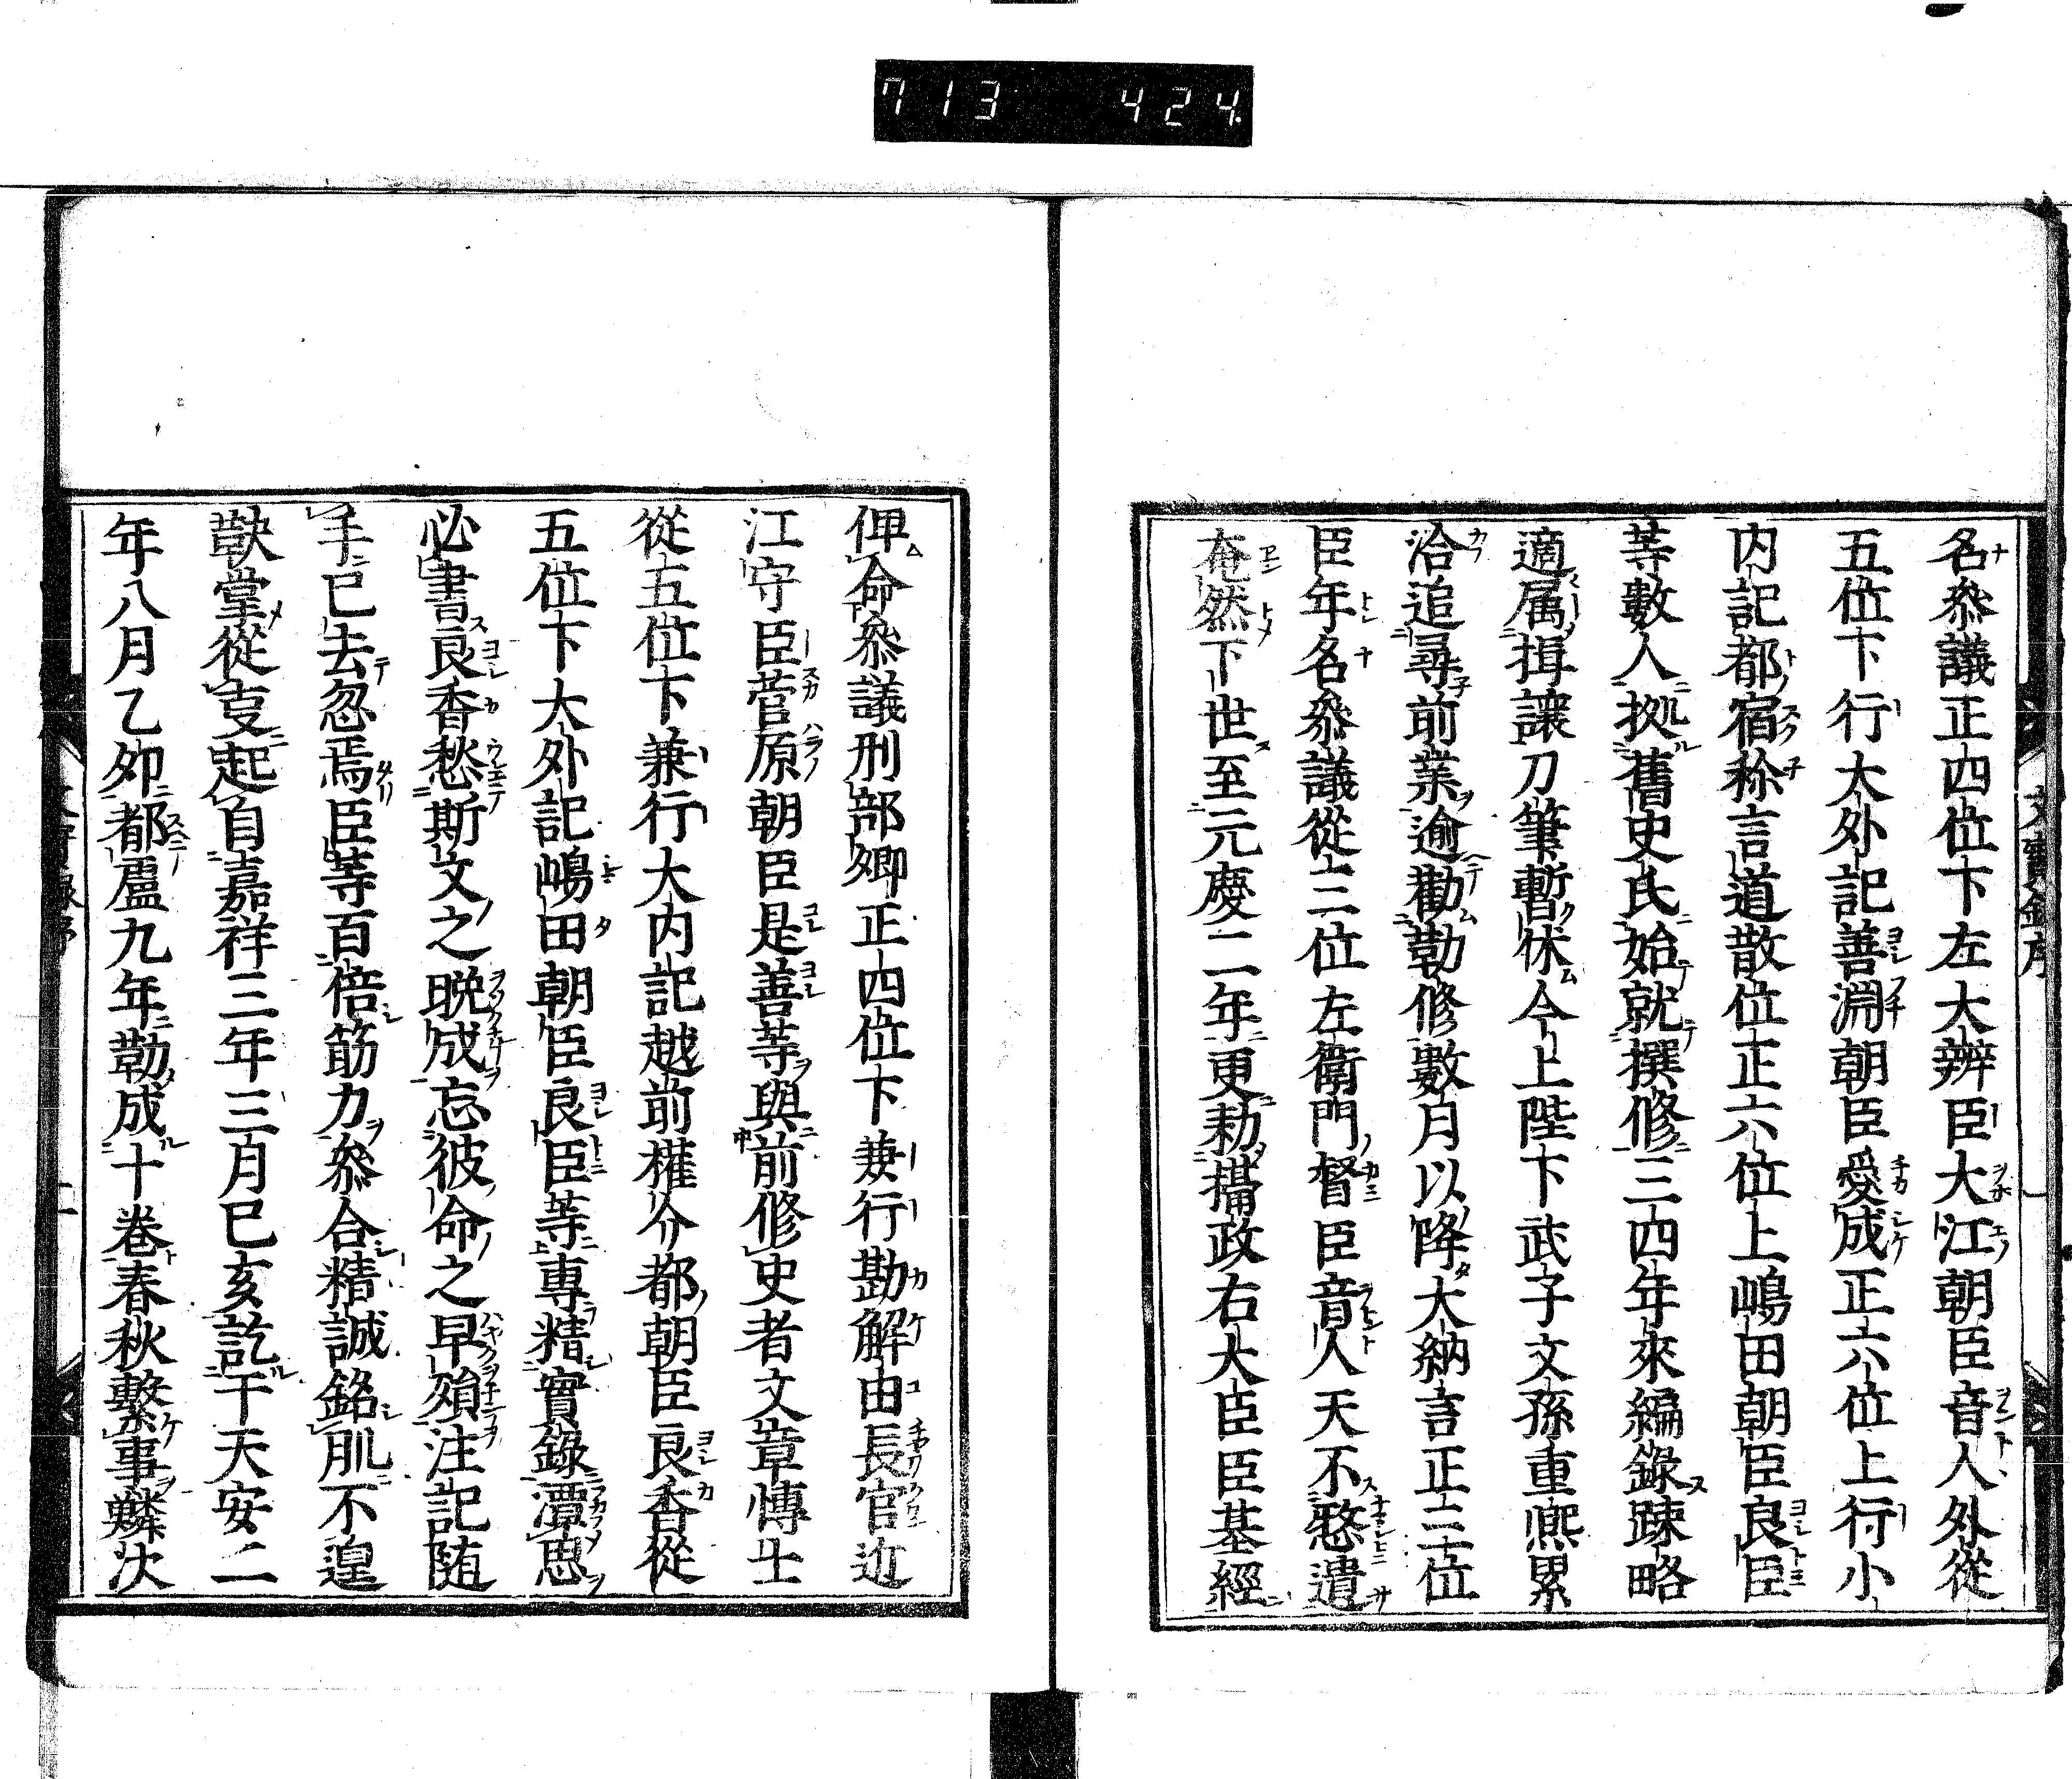 713 424
名叅議正四位下左大辨臣大江朝臣音人外從
五位下行大外記善淵朝臣愛成正六位上行小
内記都宿祢言道散位正六位上嶋田朝臣良臣
等數人據舊史氏始就撰修三四年來編錄踈略
適属揖讓刀筆暫休今上陛下武子文孫重凞累
洽追尋前業逾勸勒修數月以降大納言正三位
臣年名叅議從三位左衛門督臣音人天不憖遺
奄然下世至元慶二年更勅攝政右大臣臣基經
俾命叅議刑部卿正四位下兼行勘解由長官近
江守臣菅原朝臣是善等與前修史者文章博士
從五位下兼行大内記越前權介都朝臣良香從
五位下大外記嶋田朝臣良臣等專精實錄潭思
必書良香愁斯文之晩成忘彼命之早殞注記随
手已去忽焉臣等百倍筋力叅合精誠銘肌不遑
歃堂從叓起自嘉祥三年三月已亥訖干天安二
年八月乙夘都盧九年勒成十巻春秋繫事鱗次
文實錄序
一
二